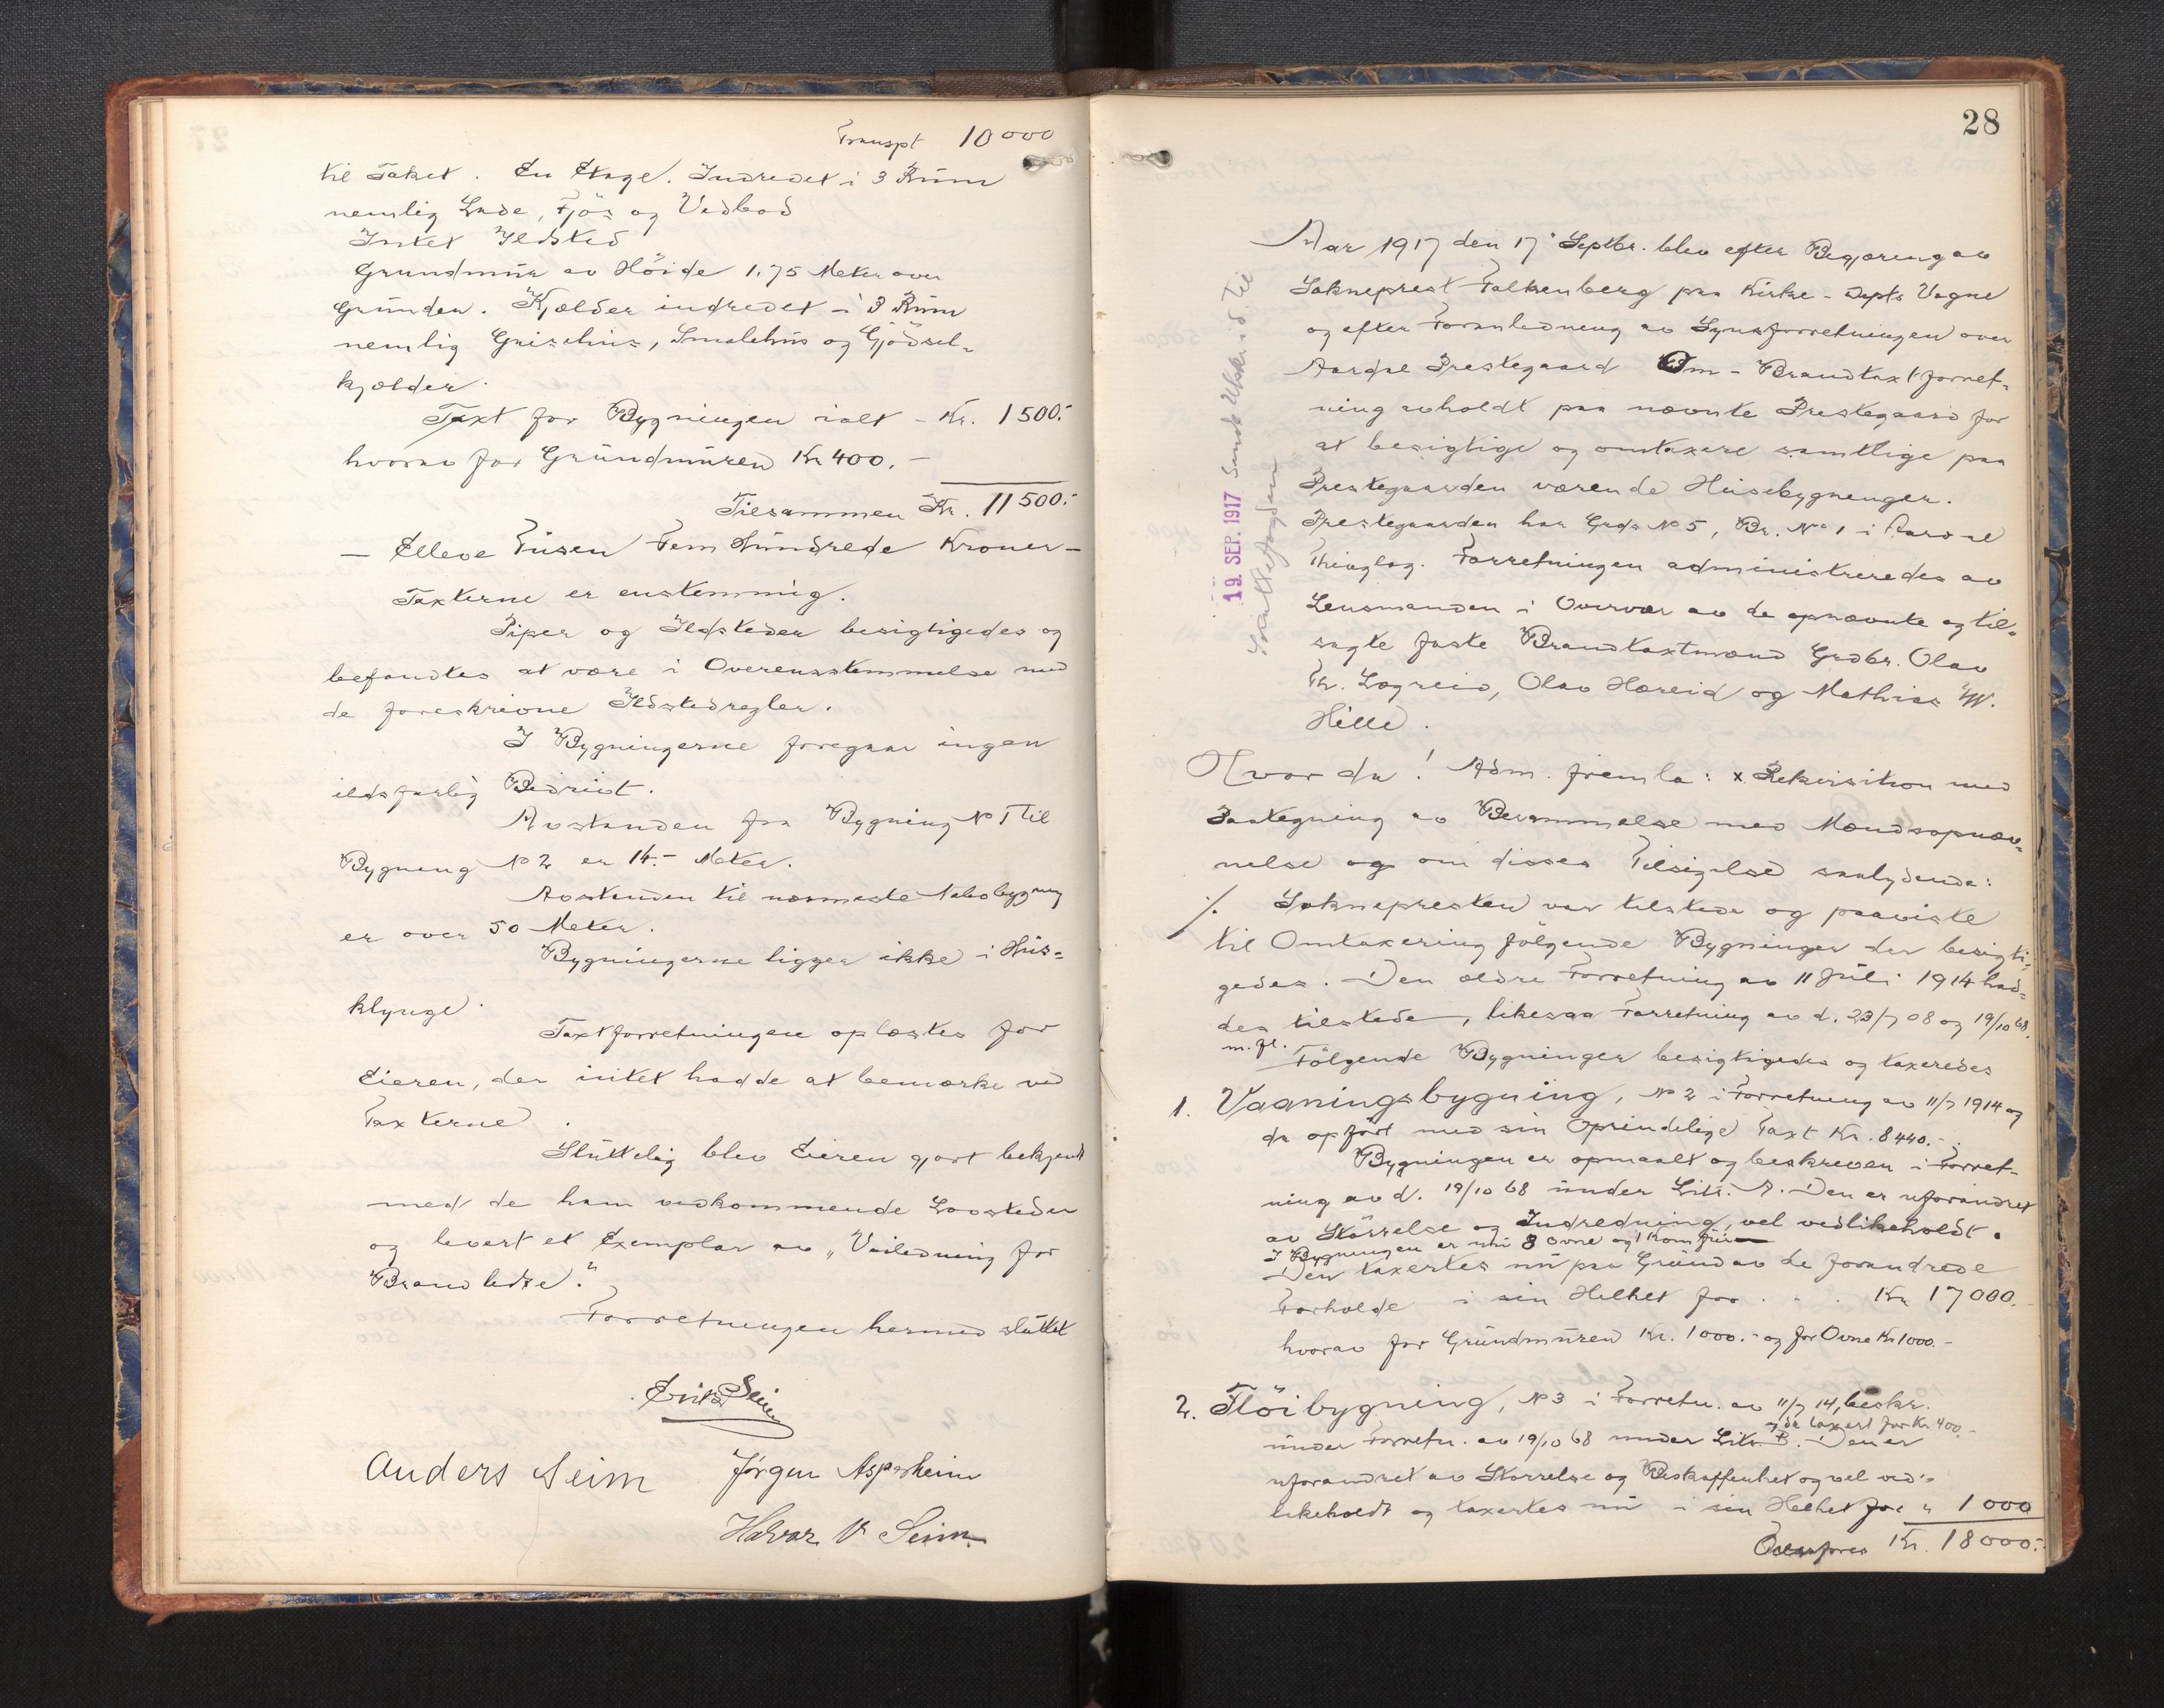 Transpt 10000
til Taket. En Etage. Indredet i 3 Rum
nemlig Lade, Fjøs og Vedbod
Intet Ildsted
Grundmur av Høide 1.75 Meter over
Grunden. Kjælder indredet i 3 Rum
nemlig Grisehus, Smalehus og Gjødsel-
kjælder.
Taxt for Bygningen ialt - Kr. 1500.-
hvorav for Grundmuren Kr 400.-
Tilsammen Kr. 11500.-
- Elleve Tusen Fem Hundrede Kroner -
Taxterne er enstemmig.
Piper og Ildsteder besigtigedes og
befandtes at være i Overensstemmelse med
de foreskrevne Ildstedregler.
I Bygningerne foregaar ingen
ildsfarlig Bedrivt.
Avstanden fra Bygning No 1 til
Bygning No 2 er 14.- Meter.
Avstanden til nærmeste Nabobygning
er over 50 Meter.
Bygningerne ligger ikke i Hus-
klynge.
Taxtforretningen oplæstes for
Eieren, der intet hadde at bemærke ved
Taxterne.
Sluttelig blev Eieren gjort bekjendt
med de ham vedkommende Lovsteder
og levert et Exemplar av "Veiledning for
Brandlidte."
Forretningen hermed sluttet
Erik Seim
Anders Seim Jørgen Asperheim
Halvar V Seim.
28
19. SEP. 1917 Sendt Utskr. i d. til
Skattefogden
Aar 1917 den 17' Septbr. blev efter Begjæring av
Sokneprest Falkenberg paa Kirke-Depts Vegne
og efter Foranledning av Synsforretningen over
Aardal Prestegaard Om-Brandtaxtforret-
ning avholdt paa nævnte Prestegaard for
at besigtige og omtaxere samtlige paa
Prestegaarden værende Husebygninger.
Prestegaarden har Grds No 5, Br. No 1 i Aardal
Thinglag. Forretningen administreredes av
Lensmanden i Overvær av de opnævnte og til-
sagte faste Brandtaxtmænd Grdbr. Olav
Th. Lægreid, Olav Hæreid og Mathias W.
Hille.
Hvor da! Adm. fremla: x Rekvisition med
Paategning av Berammelse med Mændsopnæv-
nelse og om disses Tilsigelse saalydende:
./. Soknepresten var tilstede og paaviste
til Omtaxering følgende Bygninger der besigti-
gedes. Den ældre Forretning av 11 Juli 1914 had-
des tilstede, likesaa Forretning av d. 23/7 08 og 19/10 68.
m.fl. Følgende Bygninger besigtigedes og taxeredes
1. Vaaningsbygning, No 2 i Forretning av 11/7 1914 og
da opført med sin Oprindelige Taxt Kr. 8440.-.
Bygningen er opmaalt og beskreven i Forret-
ning av d. 19/10 68 under Litr. A. Den er uforandret
av Størrelse og Indredning, vel vedlikeholdt.
I Bygningen er nu 8 Ovne og 1 Komfur
Den taxertes nu paa Grund av de forandrede
Forholde i sin Helhet for . . . Kr 17000.-
hvorav for Grundmuren Kr. 1000.- og for Ovne Kr 1000.-
2. Fløibygning, No 3 i Forretn. av 11/7 14, beskr.
og da taxert for Kr 400.-
under Forretn. av 19/10 68 under Litr. B. Den er
uforandret av Størrelse og Beskaffenhet og vel ved-
likeholdt og taxertes nu i sin Helhet for " 1000
Overføres Kr. 18000.-